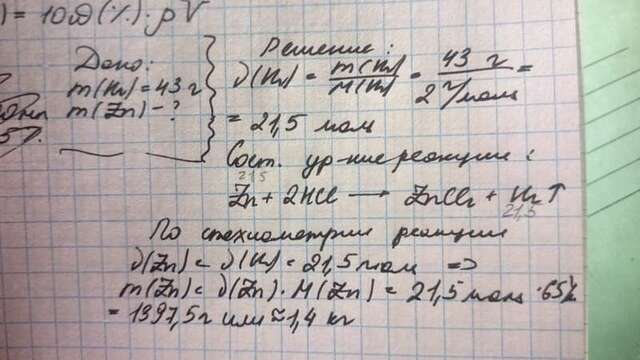 ) = 10ω(%)·ρV
Дано:
m(H₂) = 43 г
m(Zn) - ?
5%
Решение:
ν(H₂) = m(H₂)/M(H₂) = 43 г/2 г/моль =
= 21,5 моль
Сост. ур-ние реакции:
21,5
Zn + 2HCl → ZnCl₂ + H₂↑
21,5
По стехиометрии реакции
ν(Zn) = ν(H₂) = 21,5 моль =>
m(Zn) = ν(Zn) · M(Zn) = 21,5 моль · 65
= 1397,5 г или ≈ 1,4 кг